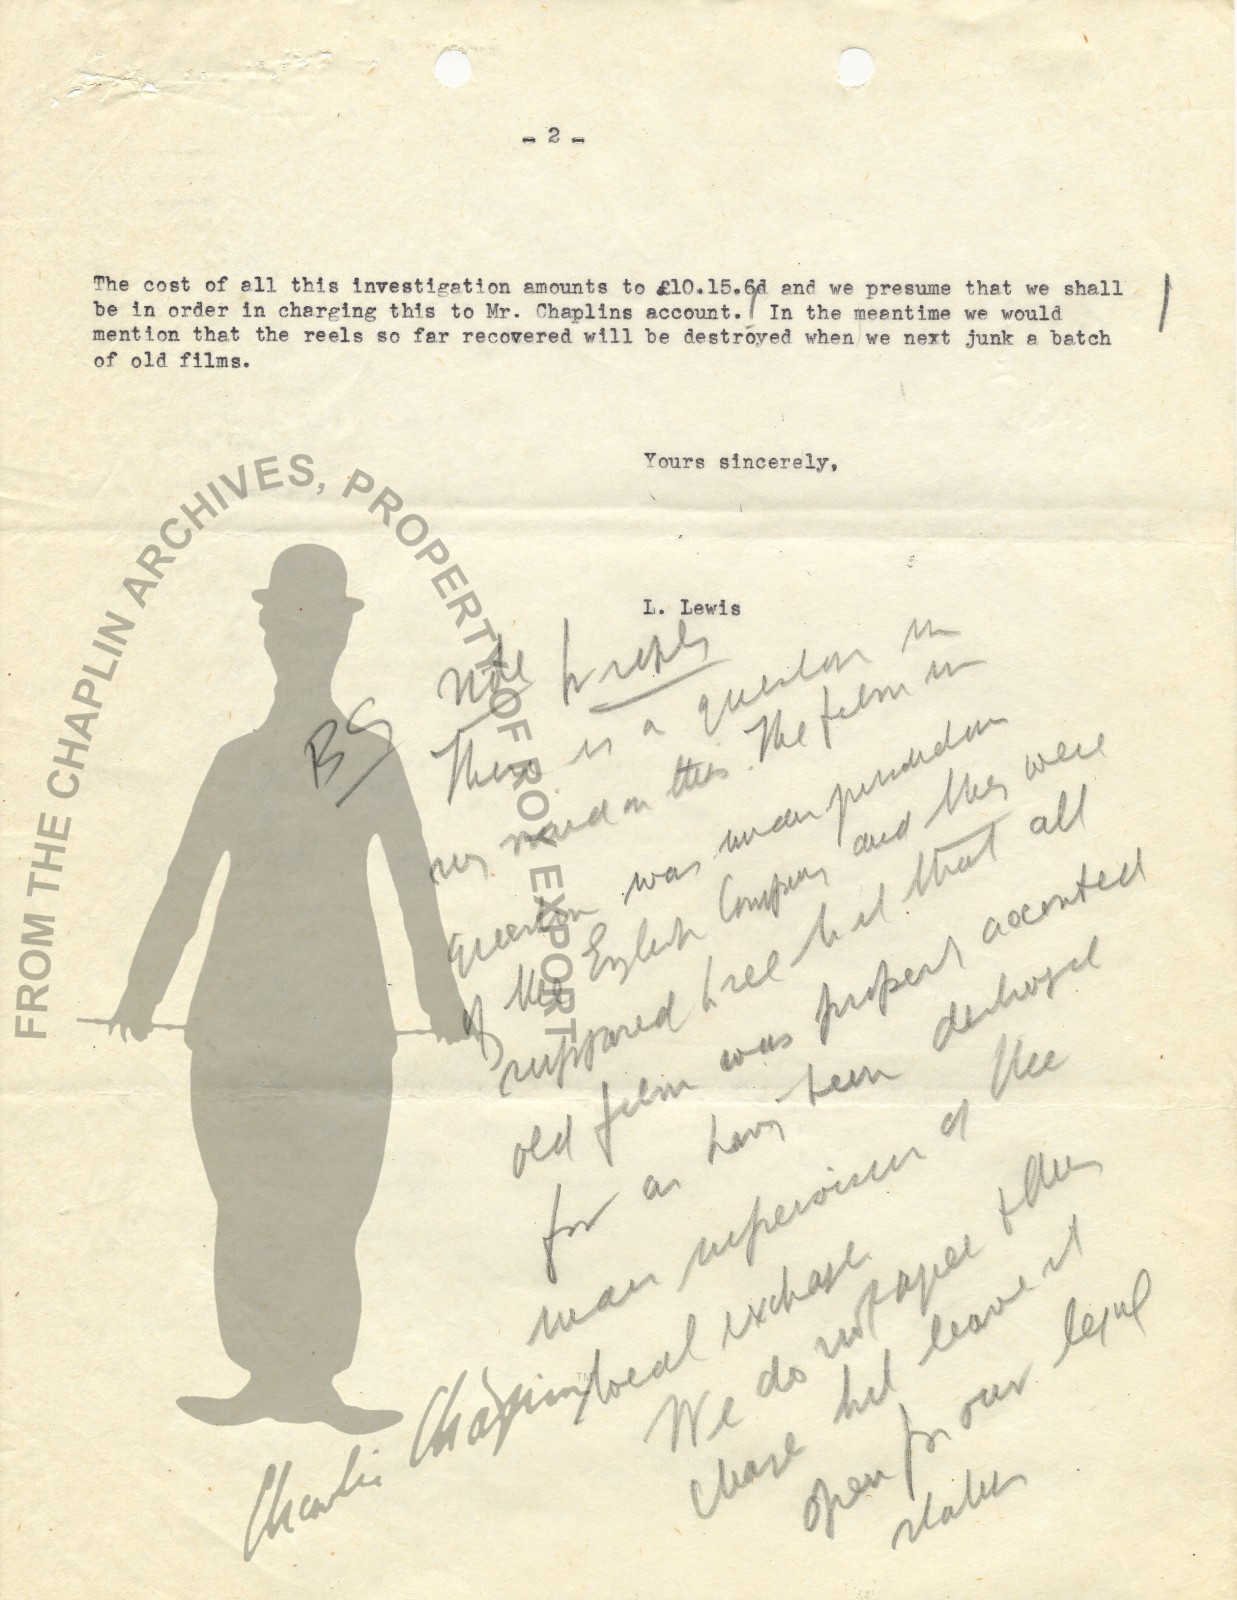 - 2 -
The cost of all this investigation amounts to £10.15.6d and we presume that we shall
be in order in charging this to Mr. Chaplins account. In the meantime we would
mention that the reels so far recovered will be destroyed when we next junk a batch
of old films.
Yours sincerely,
L. Lewis
FROM THE CHAPLIN ARCHIVES, PROPERTY OF ROY EXPORT
BS
Note for reply
There is a question in
my mind on this. The film in
question was under
of the English Company and they were
supposed to see to it that all
old film was properly accounted
for as having been destroyed
supervision of the
local exchange
We do not agree to this
charge but leave it
open for our legal
status
Charlie Chaplin ™